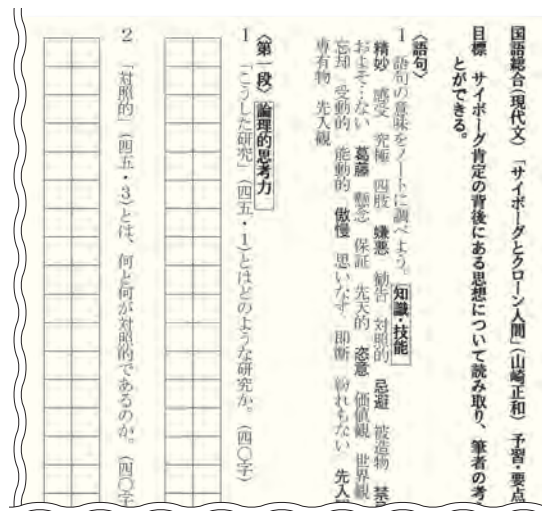 国語総合(現代文)「サイボーグとクローン人間」(山崎正和) 予習・要点
目標 サイボーグ肯定の背後にある思想について読み取り、筆者の考
とができる。
〈語句〉
1 語句の意味をノートに調べよう。 知識・技能
精妙 感受 究極 四肢 嫌悪 勧告 対照的 忌避 被造物 禁忌
およそ…ない 葛藤 懸念 保証 先天的 恣意 価値観 世界観
忘却 受動的 能動的 傲慢 思いなす 即断 紛れもない 先入
専有物 先入観
〈第一段〉 論理的思考力
1 「こうした研究」(四五・1)とはどのような研究か。(四〇字)
2 「対照的」(四五・3)とは、何と何が対照的であるのか。(四〇字